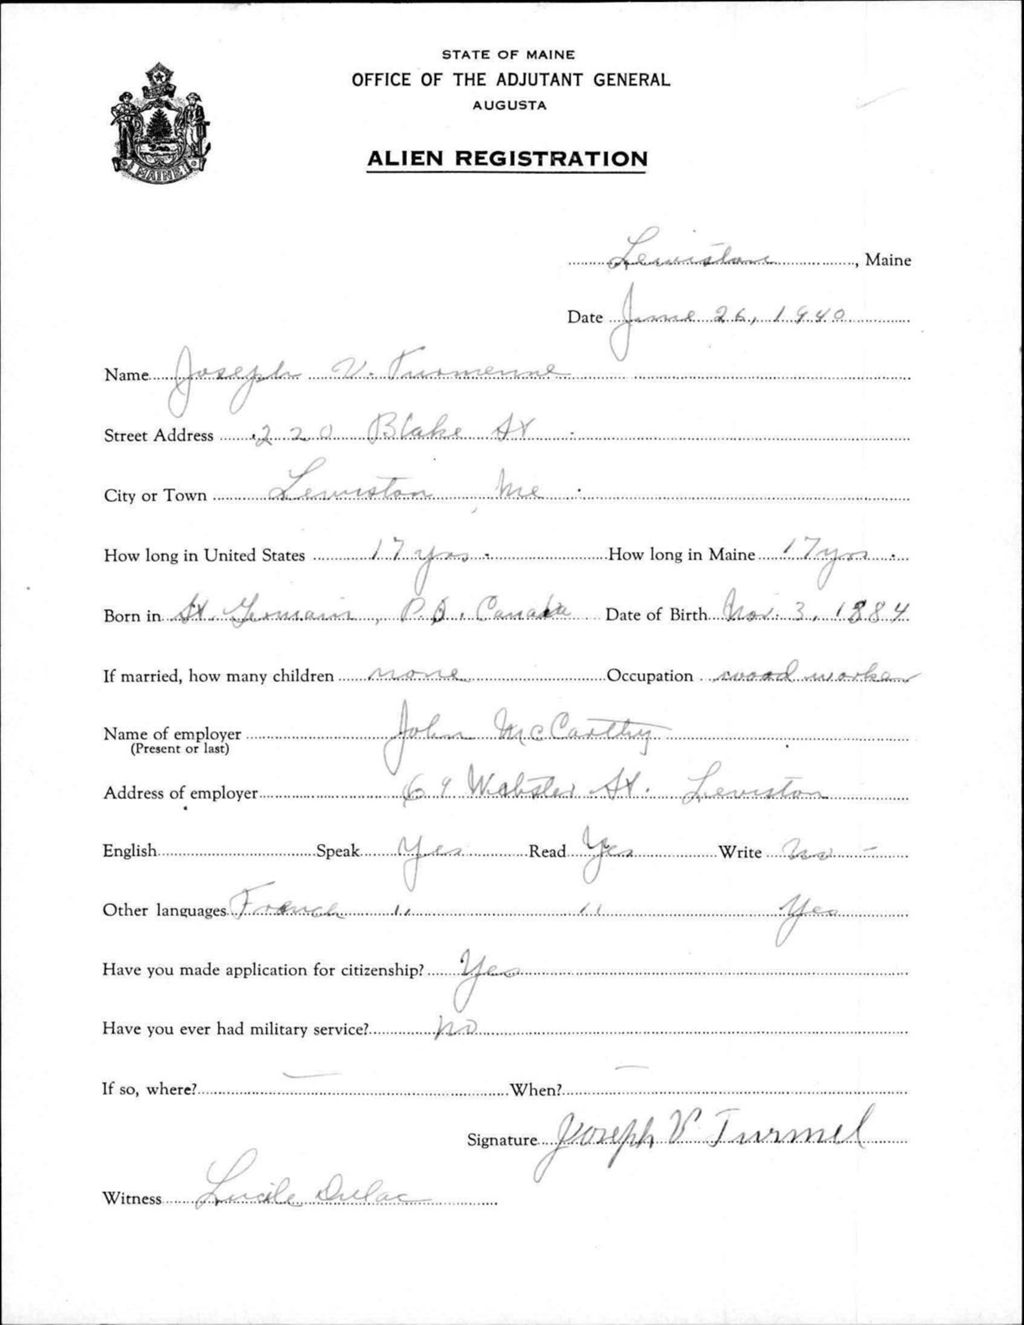 STATE OF MAINE
OFFICE OF THE ADJUTANT GENERAL
AUGUSTA
ALIEN REGISTRATION
MAINE
Lewiston, Maine
Date June 26, 1940
Name Joseph V. Turmenne
Street Address 220 Blake St
City or Town Lewiston Me
How long in United States 17 yrs. How long in Maine 17 yrs.
Born in St. Germain, P.Q. Canada Date of Birth Nov. 3, 1884
If married, how many children none Occupation wood worker
Name of employer John McCarthy
(Present or last)
Address of employer 69 Webster St. Lewiston
English Speak Yes Read Yes Write No -
Other languages French " " Yes
Have you made application for citizenship? Yes
Have you ever had military service? no
If so, where? — When? —
Signature Joseph V Turmel
Witness Lucile Dulac